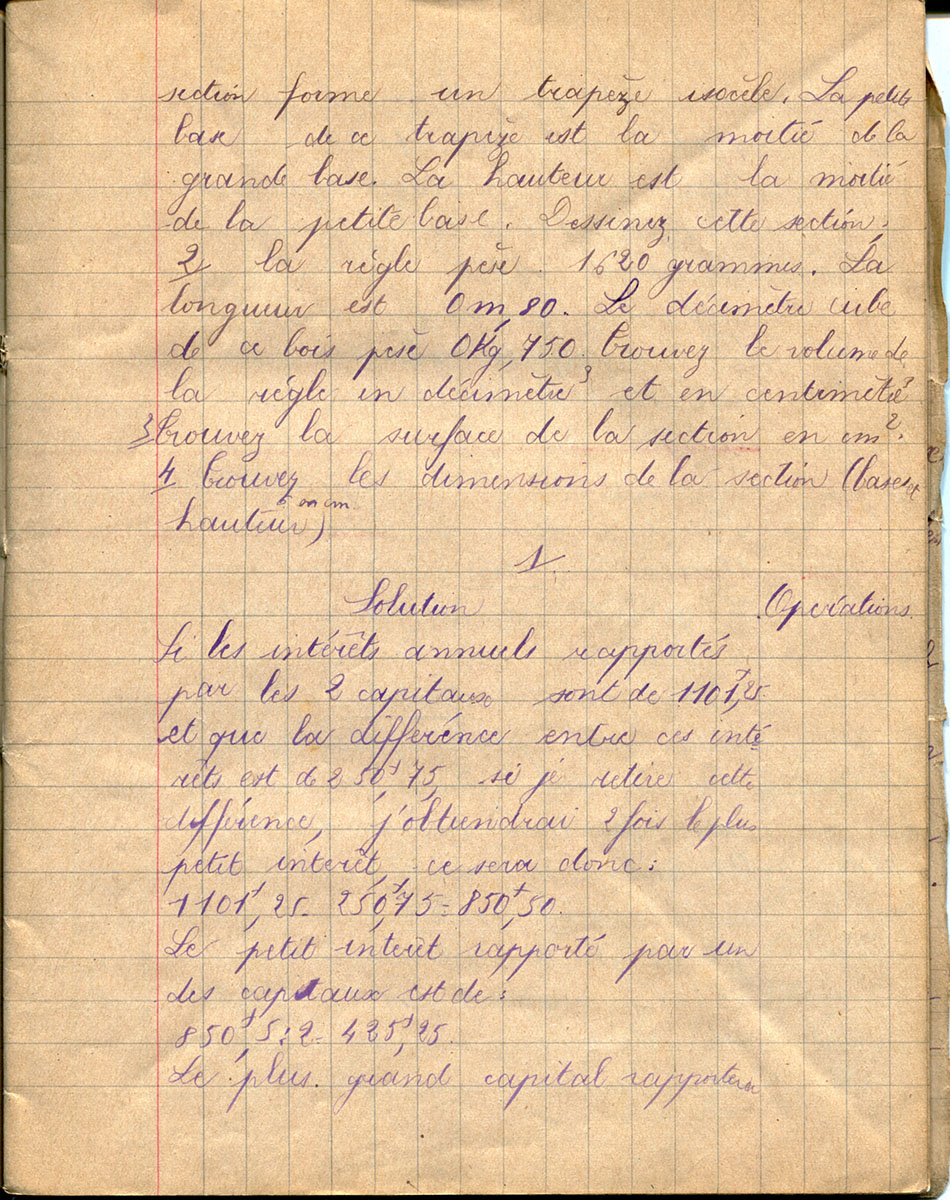 section forme un trapèze isocèle. La petite
base de ce trapèze est la moitié de la
grande base. La hauteur est la moitié
de la petite base. Dessinez cette section.
2 la règle pèse 1620 grammes. La
longueur est 0m,80. Le décimètre cube
de ce bois pèse 0Kg,750. Trouvez le volume de
la règle en décimètre³ et en centimètre³
3 Trouvez la surface de la section en cm².
4 Trouvez les dimensions de la section (bases et
hauteur) en cm
1
Solution Opérations.
Si les intérêts annuels rapportés
par les 2 capitaux sont de 1101f,25
et que la différence entre ces inté
rêts est de 250f,75, si je retire cette
différence, j'obtiendrai 2 fois le plus
petit intérêt, ce sera donc :
1101f,25 - 250f,75 = 850f,50.
Le petit intérêt rapporté par un
des capitaux est de :
850f,5 : 2 = 425f,25.
Le plus grand capital rapportera